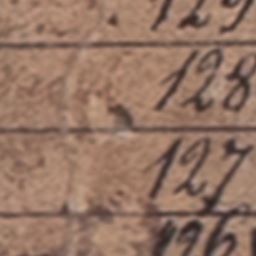 129
128
127
126